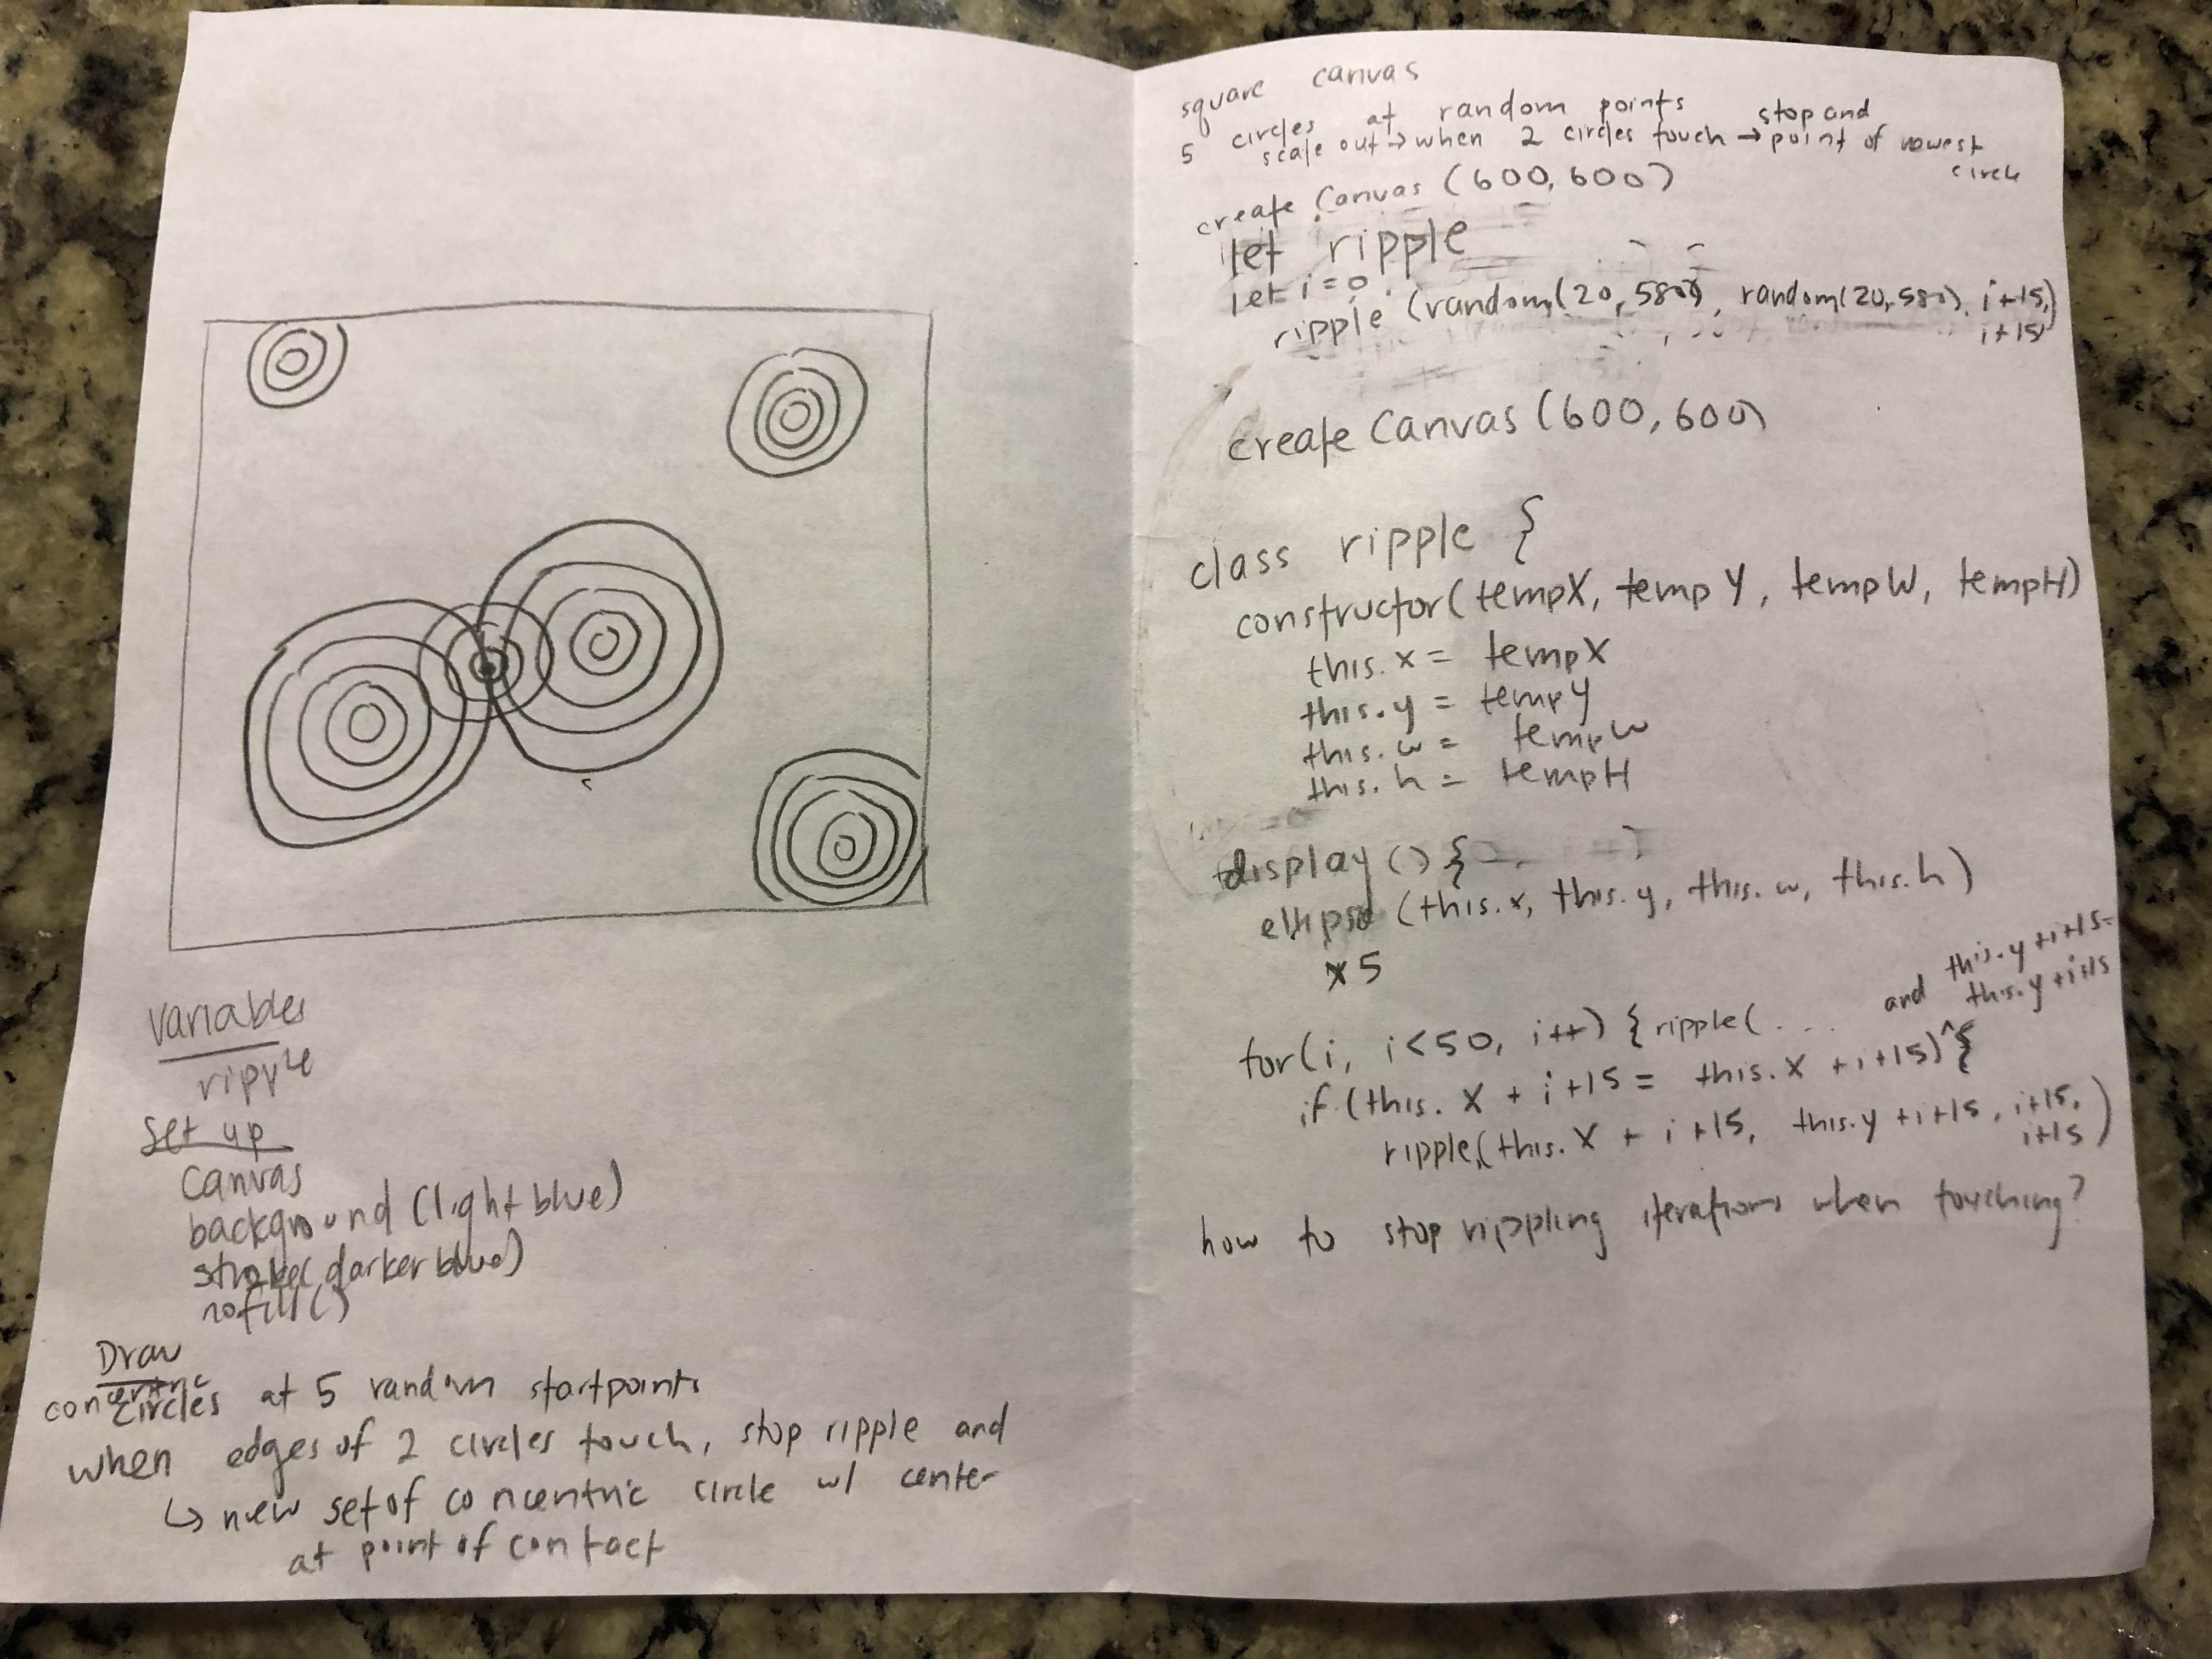 Variables
ripple
set up
Canvas
background (light blue)
stroke (darker blue)
nofill()
Draw
concentric
circles at 5 random startpoints
when edges of 2 circles touch, stop ripple and
↳ new set of concentric circle w/ center
at point of contact
canvas
square
5 circles at random points
scale out → when 2 circles touch → point of newest circle
stop and
create Canvas (600,600)
let ripple
let i=0;
ripple (random(20,580), random(20,580), i+15,
i+15)
createCanvas (600,600)
class ripple {
constructor(tempX, tempY, tempW, tempH)
this.x = tempX
this.y = tempY
this.w = tempW
this.h = tempH
display () {
ellipse (this.x, this.y, this.w, this.h)
x5
for(i, i<50, i++) { ripple(...
if (this.x + i+15 = this.x + i+15) {
and this.y+i+15=
this.y+i+15
ripple(this.x + i+15, this.y+i+15, i+15,
i+15)
how to stop rippling iterations when touching?